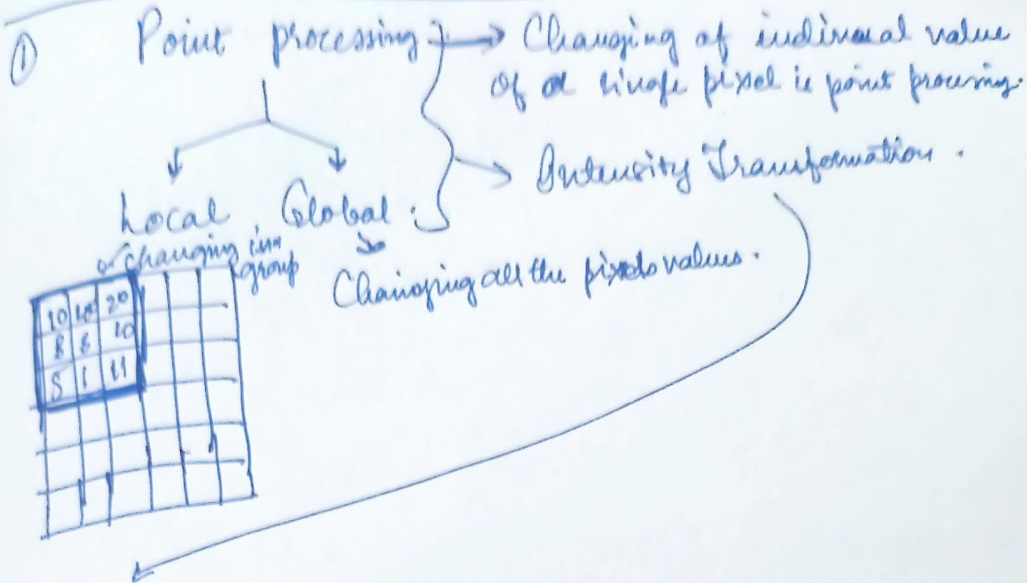 ① Point processing → Changing of indivual value
of a single pixel is point processing.
→ Intensity Transformation.
Local Global.
changing in a
group
Changing all the pixels values.
10 20
8 6 10
5 1 11